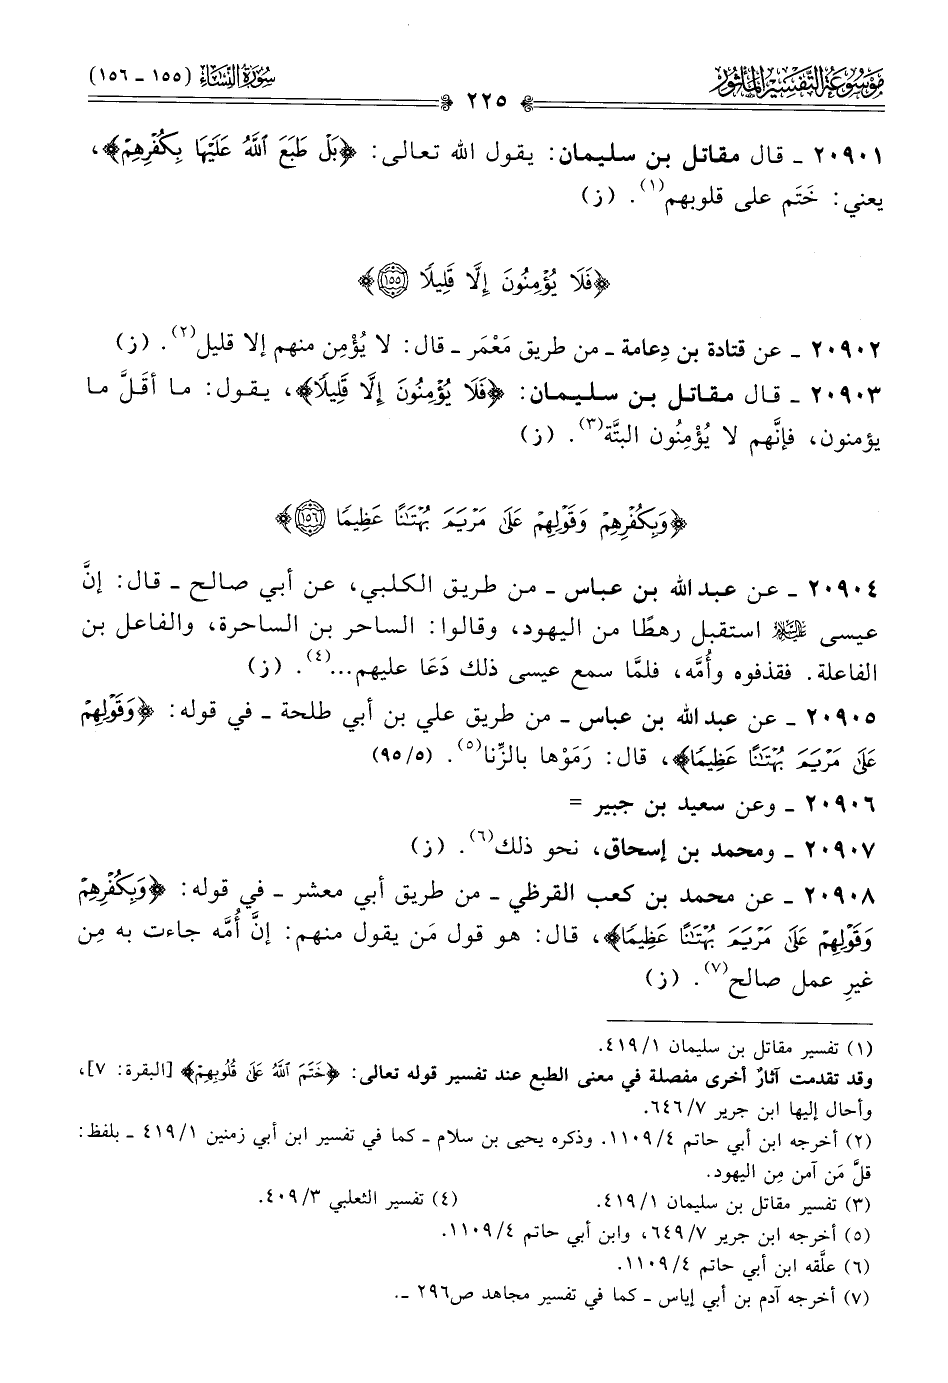 موسوعة التفسير المأثور
سورة النساء (١٥٥ ـ ١٥٦)
٢٢٥
٢٠٩٠١ ـ قال مقاتل بن سليمان: يقول الله تعالى: ﴿بَلْ طَبَعَ ٱللَّهُ عَلَيْهَا بِكُفْرِهِمْ﴾،
يعني: خَتَم على قلوبهم(١). (ز)
﴿فَلَا يُؤْمِنُونَ إِلَّا قَلِيلًا ١٥٥﴾
٢٠٩٠٢ ـ عن قتادة بن دِعامة ـ من طريق مَعْمَر ـ قال: لا يُؤْمِن منهم إلا قليل(٢). (ز)
٢٠٩٠٣ ـ قال مقاتل بن سليمان: ﴿فَلَا يُؤْمِنُونَ إِلَّا قَلِيلًا﴾، يقول: ما أقَلَّ ما
يؤمنون، فإنَّهم لا يُؤْمِنُون البتَّة(٣). (ز)
﴿وَبِكُفْرِهِمْ وَقَوْلِهِمْ عَلَىٰ مَرْيَمَ بُهْتَٰنًا عَظِيمًا ١٥٦﴾
٢٠٩٠٤ ـ عن عبد الله بن عباس ـ من طريق الكلبي، عن أبي صالح ـ قال: إنَّ
عيسى عليه السلام استقبل رهطًا من اليهود، وقالوا: الساحر بن الساحرة، والفاعل بن
الفاعلة. فقذفوه وأُمَّه، فلمَّا سمع عيسى ذلك دَعَا عليهم...(٤). (ز)
٢٠٩٠٥ ـ عن عبد الله بن عباس ـ من طريق علي بن أبي طلحة ـ في قوله: ﴿وَقَوْلِهِمْ
عَلَىٰ مَرْيَمَ بُهْتَٰنًا عَظِيمًا﴾، قال: رَمَوْها بالزِّنا(٥). (٩٥/٥)
٢٠٩٠٦ ـ وعن سعيد بن جبير =
٢٠٩٠٧ ـ ومحمد بن إسحاق، نحو ذلك(٦). (ز)
٢٠٩٠٨ ـ عن محمد بن كعب القرظي ـ من طريق أبي معشر ـ في قوله: ﴿وَبِكُفْرِهِمْ
وَقَوْلِهِمْ عَلَىٰ مَرْيَمَ بُهْتَٰنًا عَظِيمًا﴾، قال: هو قول مَن يقول منهم: إنَّ أُمَّه جاءت به مِن
غيرِ عمل صالح(٧). (ز)
(١) تفسير مقاتل بن سليمان ٤١٩/١.
وقد تقدمت آثارٌ أخرى مفصلة في معنى الطبع عند تفسير قوله تعالى: ﴿خَتَمَ ٱللَّهُ عَلَىٰ قُلُوبِهِمْ﴾ [البقرة: ٧]،
وأحال إليها ابن جرير ٦٤٦/٧.
(٢) أخرجه ابن أبي حاتم ١١٠٩/٤. وذكره يحيى بن سلام ـ كما في تفسير ابن أبي زمنين ٤١٩/١ ـ بلفظ:
قلَّ مَن آمن مِن اليهود.
(٣) تفسير مقاتل بن سليمان ٤١٩/١. (٤) تفسير الثعلبي ٤٠٩/٣.
(٥) أخرجه ابن جرير ٦٤٩/٧، وابن أبي حاتم ١١٠٩/٤.
(٦) علَّقه ابن أبي حاتم ١١٠٩/٤.
(٧) أخرجه آدم بن أبي إياس ـ كما في تفسير مجاهد ص٢٩٦ ـ.